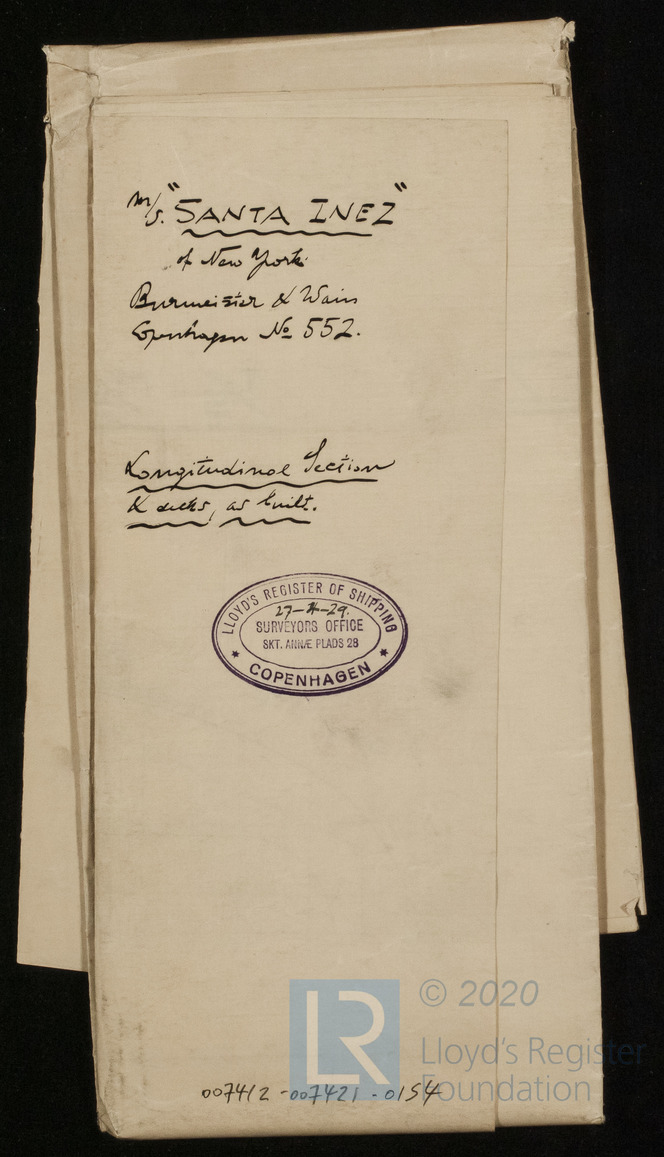 m/s. "SANTA INEZ"
of New York
Burmeister & Wain
Copenhagen No 552.
Longitudinal Section
& decks, as built.
LLOYD'S REGISTER OF SHIPPING
SURVEYORS OFFICE
SKT. ANNÆ PLADS 28
★ COPENHAGEN ★
LR
© 2020
Lloyd's Register
Foundation
007412-007421-0154